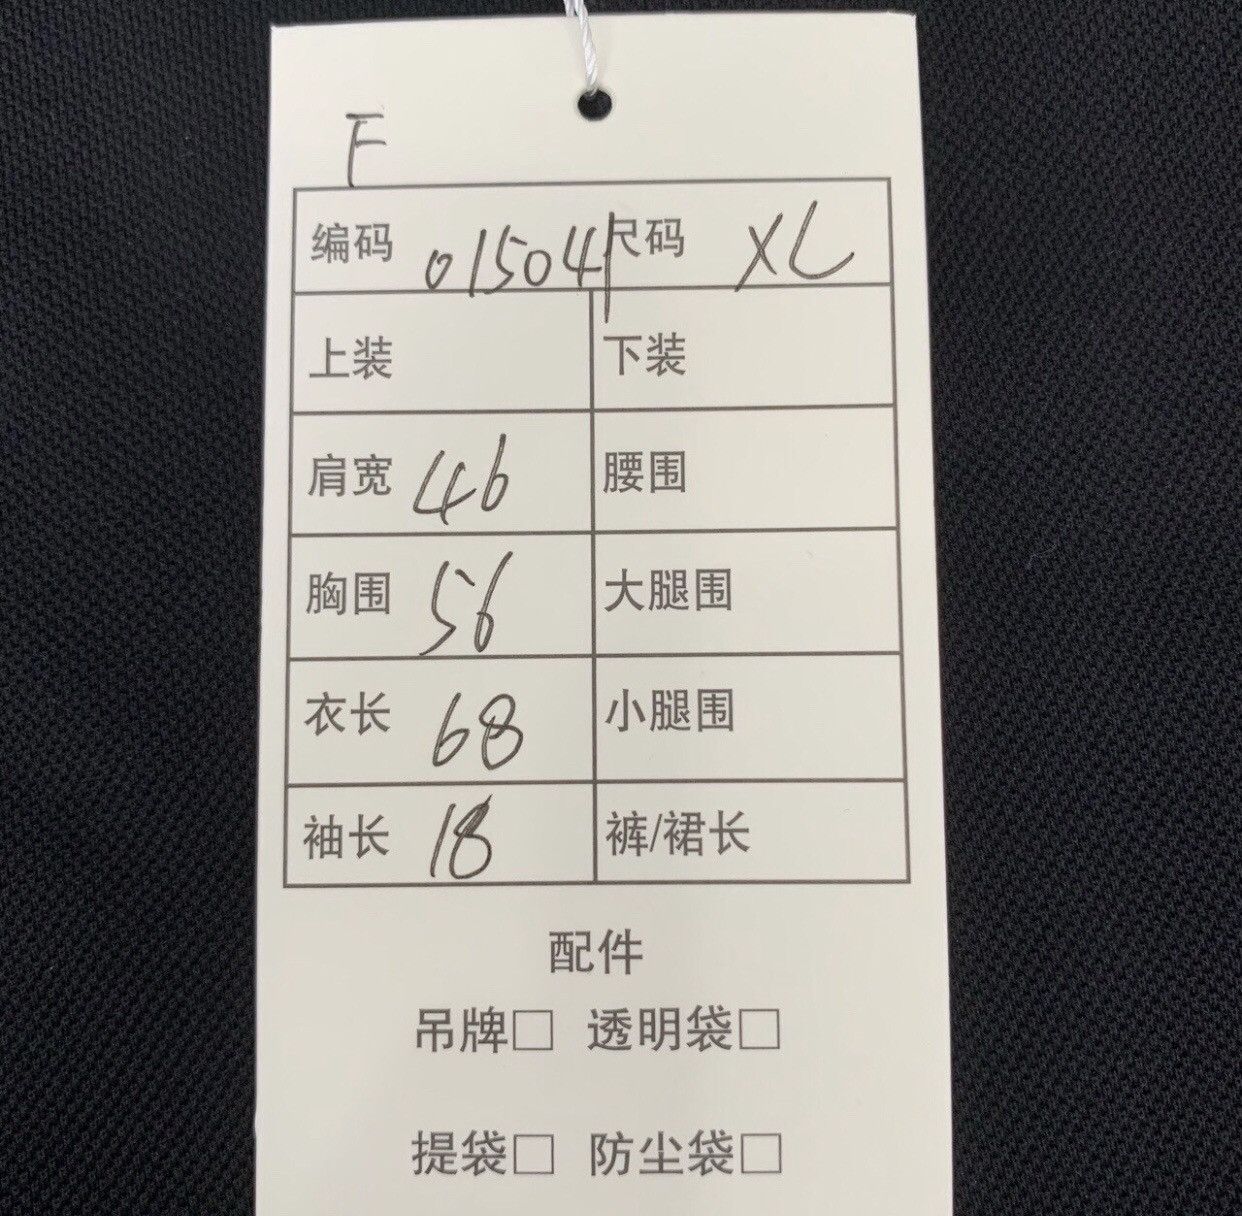 F
编码 015041 尺码 XL
上装 下装
肩宽 46 腰围
胸围 56 大腿围
衣长 68 小腿围
袖长 18 裤/裙长
配件
吊牌□ 透明袋□
提袋□ 防尘袋□